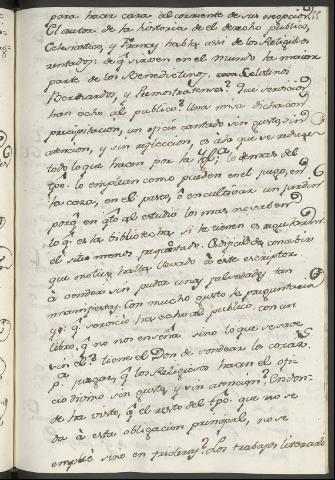 para hacer cara al corriente de sus negocios?
El autor de la historia de el derecho público,
Eclesiastico, y Frances habla assi de los Religiosos
rentados: de q sirven en el mundo la maior
parte de los Benedictinos, Celestinos
Bernardos, y Premostratenses? Que servicios
han echo al publico? Una misa dicha con
precipitacion, un oficio cantado sin gusto, sin
atencion, y sin reflecion, es à lo que se reduce
todo lo que hacen por la lo demas del
tpo. lo emplean como pueden en el juego, en
la caza, en el paseo, ô en cultibar un jardin
porq en qto al estudio los mas no saben
lo q es la bibliotheca, si la tienen es
el sitio menos frequentado.
que malicia halla llevado à este escriptor
à vender sin pudor unas falsedades tan
manifiestas. Con mucho gusto le preguntaria
yo q servicio ha echo al publico con un
libro, q no nos enseña sino lo que se save
sin el? tiene el Don de sondear los corazs.
pa. juzgar, q los Religiosos hacen el ofi-
cio divino sin gusto, y sin atencion? En don-
de ha visto, q el resto del tpo. que no se
da à esta obligacion principal, no se
empleé sino en frioleras? Los trabajos literarios